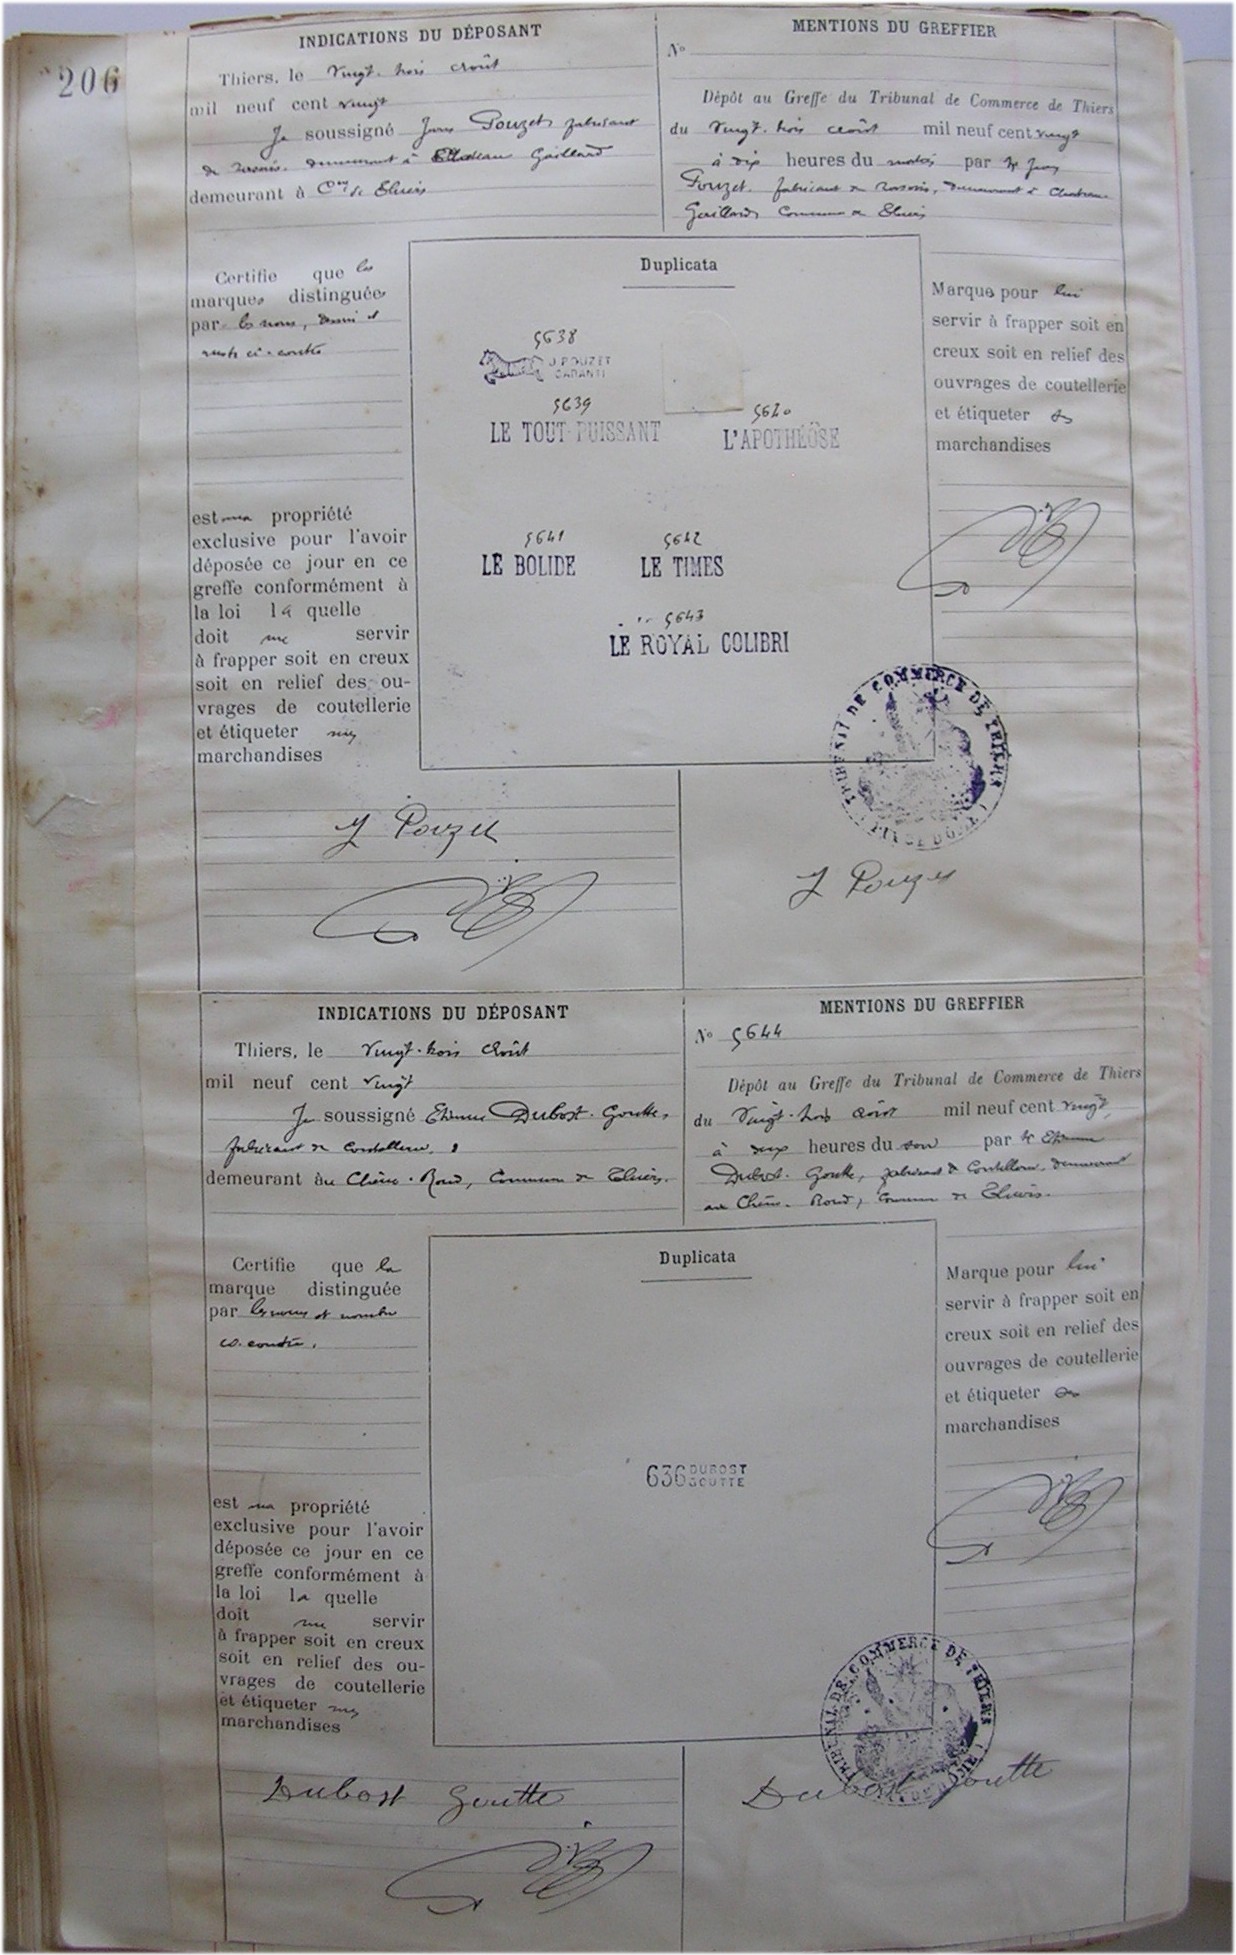 206
INDICATIONS DU DÉPOSANT
Thiers, le vingt-trois Août
mil neuf cent vingt
Je soussigné Pouzet fabricant
de rasoirs, demeurant à Château Gaillard
demeurant à Cne de Thiers
Certifie que les
marques distinguées
par les noms, dessin et
mots ci-contre
est ma propriété
exclusive pour l'avoir
déposée ce jour en ce
greffe conformément à
la loi la quelle
doit me servir
à frapper soit en creux
soit en relief des ou-
vrages de coutellerie
et étiqueter mes
marchandises
J Pouzet
MENTIONS DU GREFFIER
No
Dépôt au Greffe du Tribunal de Commerce de Thiers
du vingt-trois Août mil neuf cent vingt
à dix heures du matin par Mr
Pouzet, fabricant de rasoirs, demeurant à Chateau
Gaillard Commune de Thiers
Duplicata
5638
J. POUZET
GARANTI
5639
LE TOUT-PUISSANT
5640
L'APOTHÉOSE
5641
LE BOLIDE
5642
LE TIMES
5643
LE ROYAL COLIBRI
Marques pour lui
servir à frapper soit en
creux soit en relief des
ouvrages de coutellerie
et étiqueter ses
marchandises
TRIBUNAL DE COMMERCE DE THIERS
(PUY DE DÔME)
J Pouzet
INDICATIONS DU DÉPOSANT
Thiers, le vingt-trois Août
mil neuf cent vingt
Je soussigné Etienne Dubost-Goutte,
fabricant de coutellerie,
demeurant au Chêne-Rond, Commune de Thiers.
Certifie que la
marque distinguée
par les noms et nombre
ci-contre.
est ma propriété
exclusive pour l'avoir
déposée ce jour en ce
greffe conformément à
la loi la quelle
doit me servir
à frapper soit en creux
soit en relief des ou-
vrages de coutellerie
et étiqueter mes
marchandises
Dubost Goutte
MENTIONS DU GREFFIER
No 5644
Dépôt au Greffe du Tribunal de Commerce de Thiers
du Vingt-trois Août mil neuf cent vingt,
à deux heures du soir par Mr Etienne
Dubost-Goutte, fabricant de Coutellerie, demeurant
au Chêne-Rond, Commune de Thiers.
Duplicata
636 DUBOST
GOUTTE
Marque pour lui
servir à frapper soit en
creux soit en relief des
ouvrages de coutellerie
et étiqueter ses
marchandises
TRIBUNAL DE COMMERCE DE THIERS
Dubost Goutte